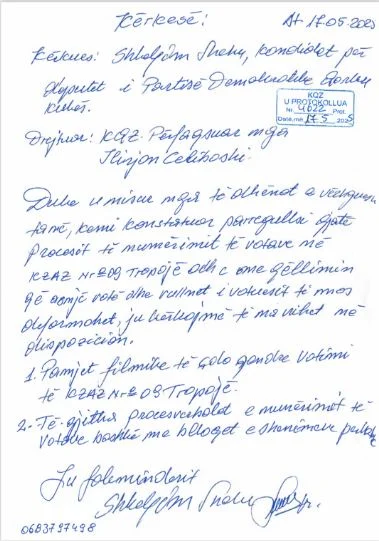 Kërkesë:
Dt 17.05.2025
Kërkues: Shkelqim Shehu, kandidat për
deputet i Partisë Demokratike Qarku
Kukës.
KQZ
U PROTOKOLLUA
Nr. 4022 Prot.
Datë më 17.5 2025
Drejtuar: KQZ Përfaqsuar nga
Ilirjan Celibashi.
Duke u nisur nga të dhënat e vëzhguesve
tanë, kemi konstatuar parregullsi gjatë
procesit të numërimit të votave në
KZAZ Nr 09 Tropojë dhe me qëllimin
që asnjë votë dhe vullnet i votuesit të mos
deformohet, ju kërkojmë të na vihet në
dispozicion.
1. Pamjet filmike të çdo qendre votimi
të KZAZ Nr 09 Tropojë.
2. Të gjitha procesverbalet e numërimit të
votave bashkë me blloqet e shënimeve
Ju faleminderit
Shkelqim Shehu
0683797498